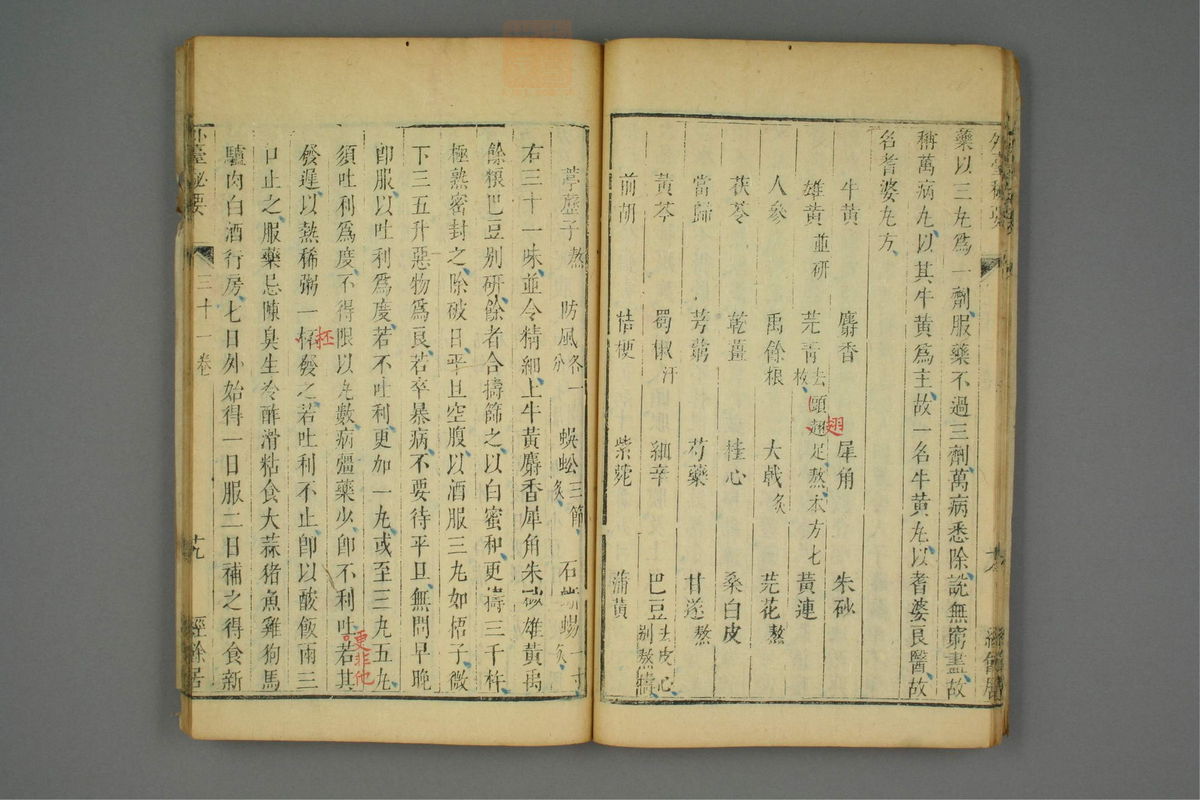 外臺秘要
藥以三丸爲一劑服藥不過三劑萬病悉除說無窮盡故
稱萬病丸以其牛黃爲主故一名牛黃丸以耆婆良醫故
名耆婆丸方
牛黃 麝香 犀角 朱砂
雄黃並研 芫青去頭翅足熬本方七枚 黃連
人參 禹餘粮 大戟炙 芫花熬
茯苓 乾薑 桂心 桑白皮
當歸 芎藭 芍藥 甘遂熬
黃芩 蜀椒汗 細辛 巴豆去皮心別熬擣
前胡 桔梗 紫菀 蒲黃
葶藶子熬 防風各一分 蜈蚣三節炙 石蜥蜴一寸炙
右三十一味並令精細上牛黃麝香犀角朱砂雄黃禹
餘粮巴豆別研餘者合擣篩之以白蜜和更擣三千杵
極熟密封之除破日平旦空腹以酒服三丸如梧子微
下三五升惡物爲良若卒暴病不要待平旦無問早晚
卽服以吐利爲度若不吐利更加一丸或至三丸五丸
須吐利爲度不得限以丸數病彊藥少卽不利吐若其
發遲以熱稀粥一桮發之若吐利不止卽以酸飯兩三
口止之服藥忌陳臭生冷酢滑粘食大蒜猪魚雞狗馬
驢肉白酒行房七日外始得一日服二日補之得食新
外臺秘要 三十一卷 經餘居
翅
杯
更非他